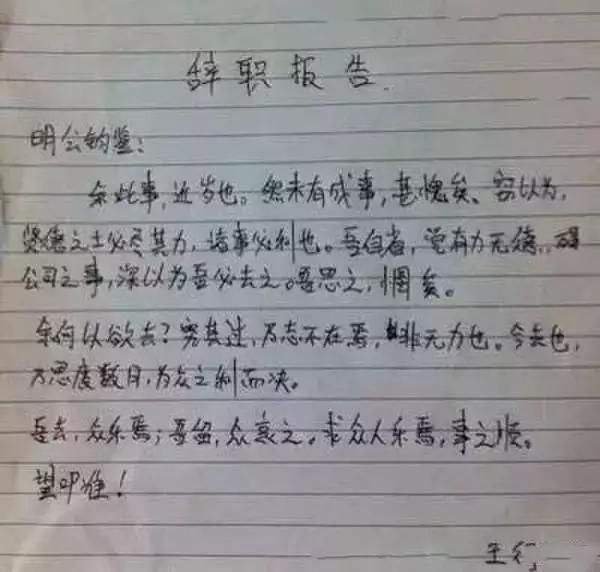 辞职报告
明公钧鉴：
余此事，近岁也。然未有成事，甚愧矣。窃以为，
贤德之士必尽其力，诸事必利也。吾自省，觉有力无德，碍
公司之事，深以为吾必去之。吾思之，惘矣。
余何以欲去？究其过，乃志不在焉，非无力也。今去也，
乃思度数月，为众之利而决。
吾去，众乐焉；吾留，众哀之。求众人乐焉，事之顺。
望叩准！
王行